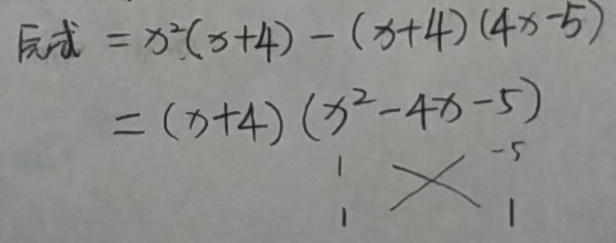 原式 = x²(x+4) - (x+4)(4x-5)
= (x+4)(x²-4x-5)
1 -5
1 1